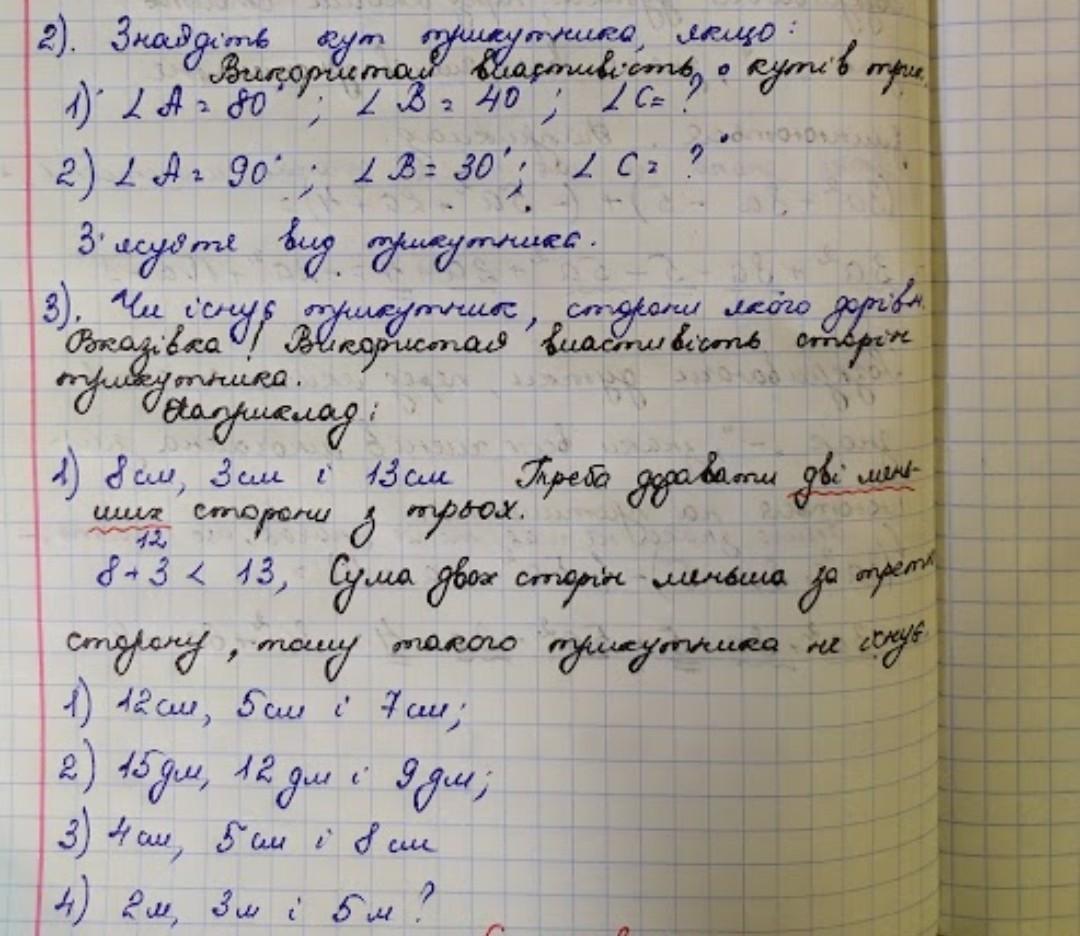 2). Знайдіть кут трикутника, якщо:
Використай властивість кутів трик.
1) ∠A = 80° ; ∠B = 40° ; ∠C = ?
2) ∠A = 90° ; ∠B = 30° ; ∠C = ?
З'ясуйте вид трикутника.
3). Чи існує трикутник, сторони якого дорівн.
Вказівка! Використай властивість сторін
трикутника.
Наприклад:
1) 8 см, 3 см і 13 см Треба додавати дві мен-
ших сторони з трьох.
12
8 + 3 < 13, Сума двох сторін меньша за третю
сторону, тому такого трикутника не існує.
1) 12 см, 5 см і 7 см;
2) 15 дм, 12 дм і 9 дм;
3) 4 см, 5 см і 8 см
4) 2 м, 3 м і 5 м ?